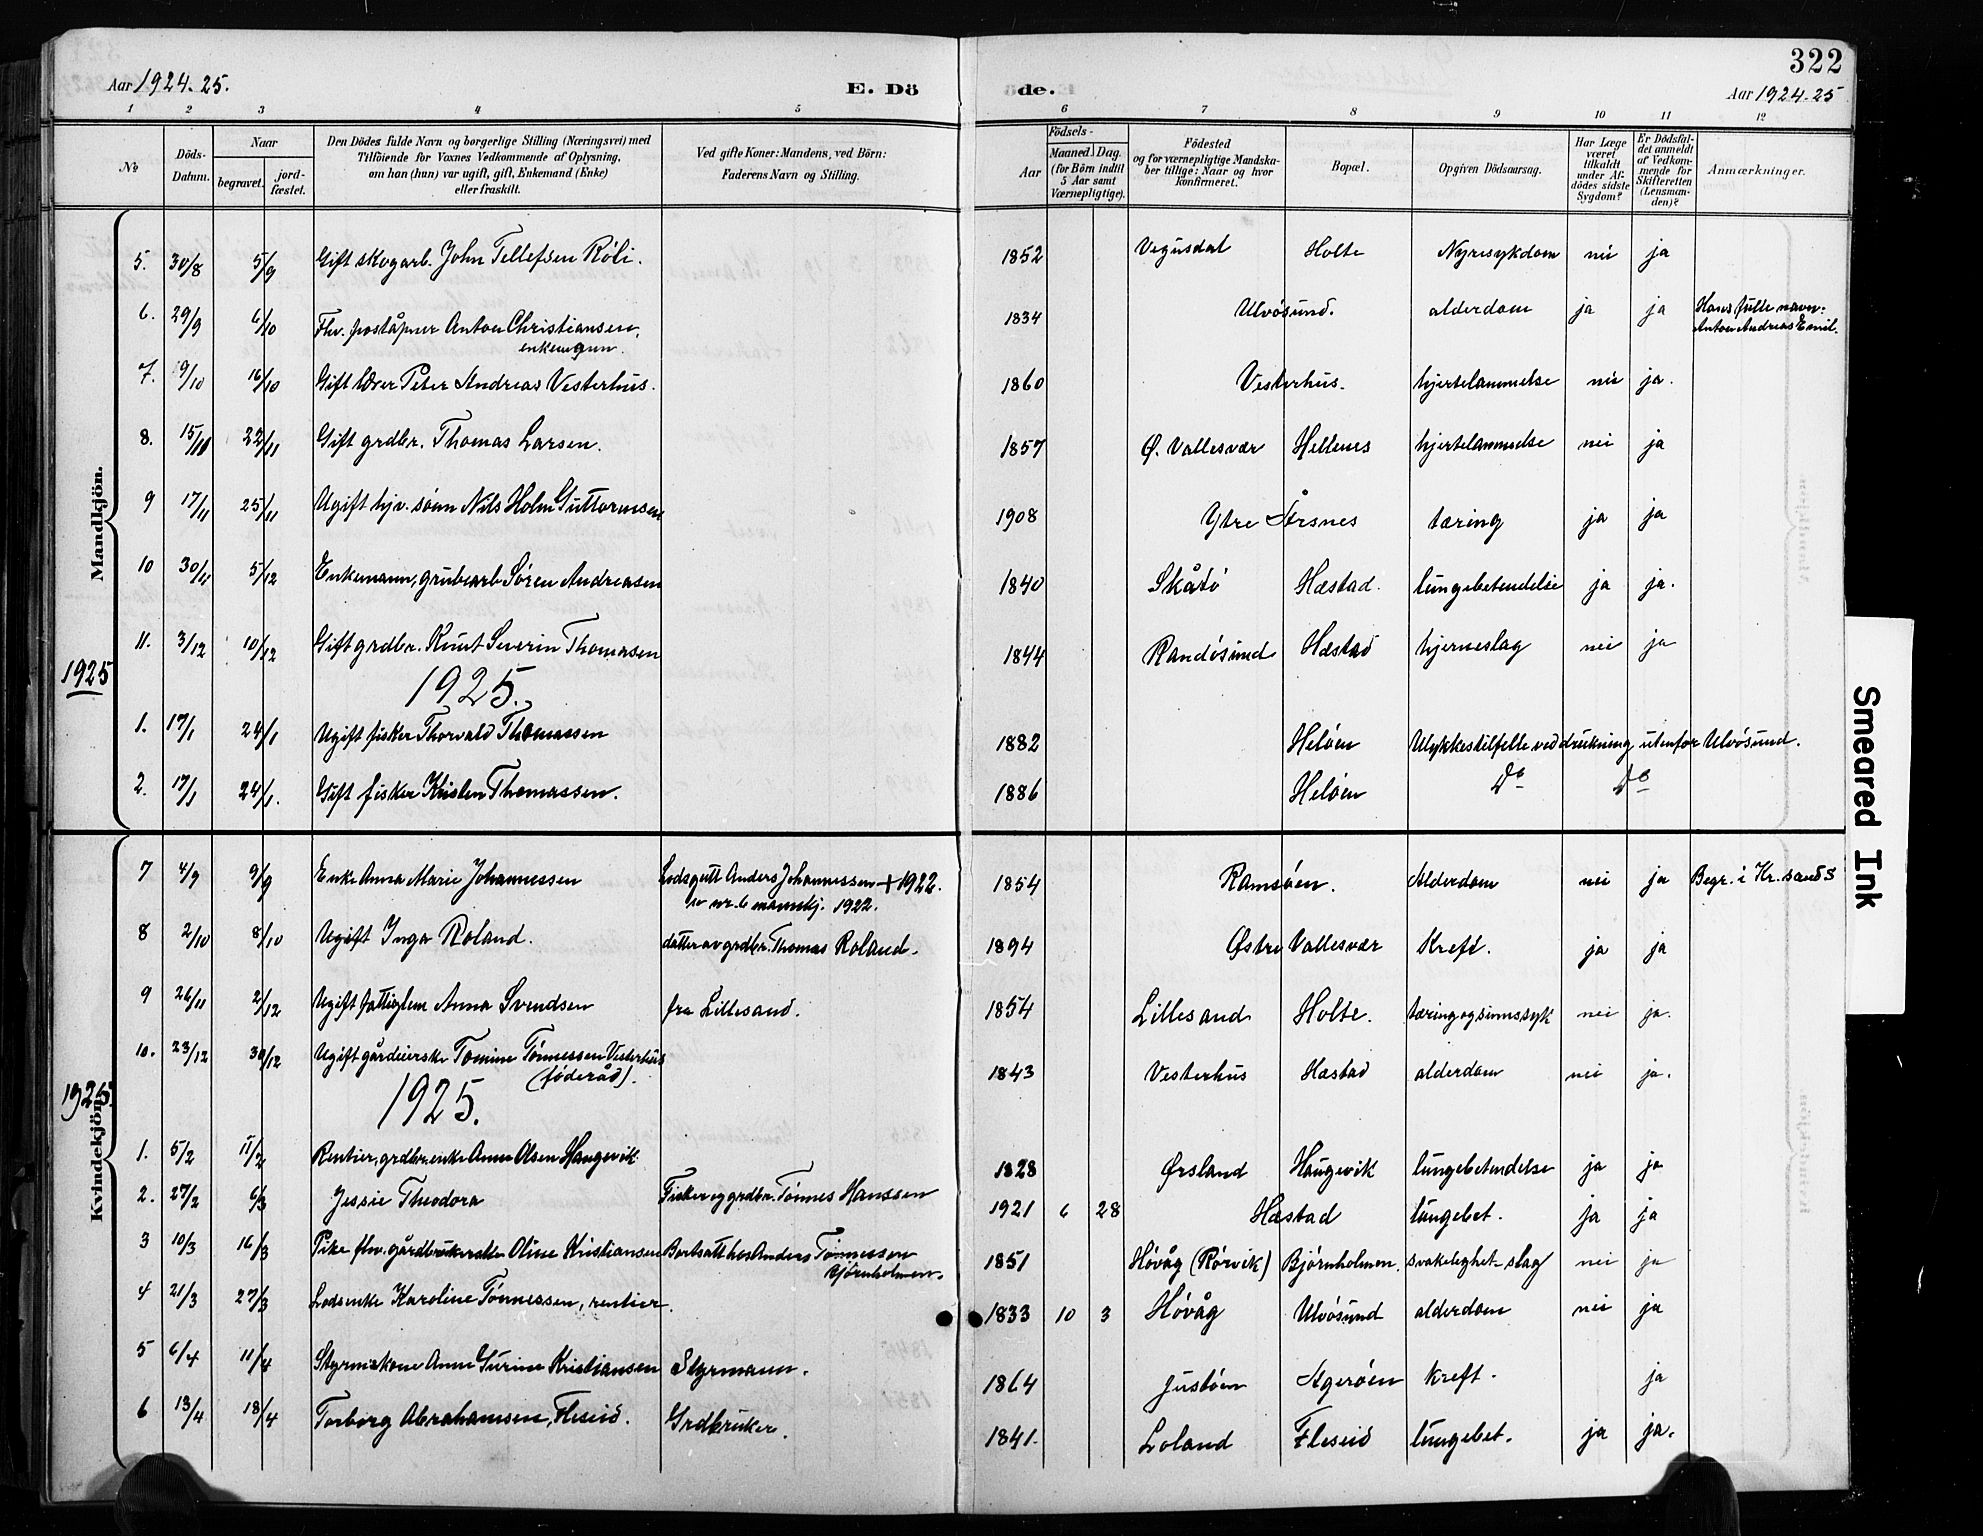 322
Aar 1924-25. E. Dö
de. Aar 1924-25
1 2 3 4 5 6 7 8 9 10 11 12
No
Döds-Datum.
Naar
begravet. jordfæstet.
Den Dödes fulde Navn og borgerlige Stilling (Næringsvei) med
Tilföiende for Voxnes Vedkommende af Oplysning,
om han (hun) var ugift, gift, Enkemand (Enke)
eller fraskilt.
Ved gifte Koner: Mandens, ved Börn:
Faderens Navn og Stilling.
Födsels-
Aar Maaned. Dag.
(for Börn indtil
5 Aar samt
Værnepligtige).
Födested
og for værnepligtige Mandska-
ber tillige: Naar og hvor
konfirmeret.
Bopæl.
Opgiven Dödsaarsag.
Har Læge
været
tilkaldt
under Af-
dödes sidste
Sygdom?
Er Dödsfal-
det anmeldt
af Vedkom-
mende for
Skifteretten
(Lensman-
den)?
Anmærkninger.
Mandkjön.
5. 30/8 5/9 Gift skogarb. John Tellefsen Röli. 1852 Vegusdal Holte Nyresykdom nei ja
6. 29/9 6/10 Fhv. poståpner Anton Christiansen, enkemann. 1834 Ulvösund. alderdom ja ja Hans fulle navn: Anton Andreas Emil.
7. 9/10 16/10 Gift lærer Peter Andreas Vesterhus. 1860 Vesterhus. hjertelammelse nei ja.
8. 15/11 22/11 Gift grdbr. Thomas Larsen. 1857 Ø. Vallesvær Hellenes hjertelammelse nei ja
9 17/11 25/11 Ugift hjv. sönn Nils Holm Guttormsen 1908 Ytre Årsnes tæring ja ja
10 30/11 5/12 Enkemann, grubearb Sören Andreasen 1840 Skåtö Hæstad. lungebetendelse ja ja.
11. 3/12 10/12 Gift grdbr. Knut Severin Thomasen 1844 Randösund Hæstad hjerneslag nei ja
1925
1925.
1. 17/1 24/1 Ugift fisker Thorvald Thomassen 1882 Helöen Ulykkestilfelle ved drukning utenfor Ulvösund.
2. 17/1 24/1. Gift fisker Kristen Thomassen. 1886 Helöen Do Do
Kvindekjön.
7 4/9 9/9 Enke Anna Marie Johannessen Lodsgutt Anders Johannessen + 1922. se nr. 6 mannskj. 1922. 1854 Ramsöen. Alderdom nei ja Begr. i Kr.sands
8 2/10 8/10 Ugift Inga Roland. datter av grdbr. Thomas Roland. 1894 Østre Vallesvær Kreft. ja ja
9 26/11 2/12 Ugift fattiglem Anna Svendsen fra Lillesand. 1854 Lillesand Holte. tæring og sinnssyk nei ja.
10. 23/12 30/12 Ugift gårdeierske Tomine Tönnessen Vesterhus (föderåd). 1843 Vesterhus Hæstad alderdom nei ja.
1925.
1925.
1. 5/2 11/2 Rentier, grdbr.enke Anne Olsen Haugevik 1828 Ørsland Haugevik lungebetendelse ja ja
2. 27/2 6/3 Jessie Theodora Fisker og grdbr. Tönnes Hanssen 1921 6 28 Hæstad lungebet. ja ja
3 10/3 16/3 Pike fhv. gårdbrukerske Oline Kristiansen Bortsatt hos Anders Tönnessen Bjørnholmen. 1851 Hövåg (Rörvik) Bjørnholmen. svakelighet - slag nei ja
4 21/3 27/3 Lodsenke Karoline Tönnessen, rentier. 1833 10 3 Hövåg Ulvösund alderdom nei ja
5 6/4 11/4 Styrmskone Anne Gurine Kristiansen Styrmann. 1864 Justöen Ageröen kreft. ja
6 13/4 18/4 Torborg Abrahamsen, Fleseid. Grdbruker. 1841. Loland Fleseid lungebet. ja ja.
Smeared Ink